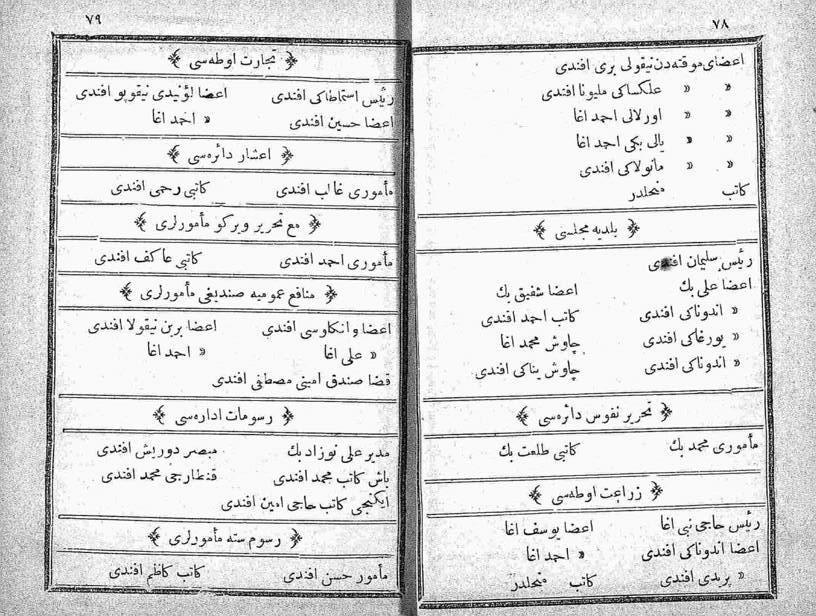 ٧٨
اعضای موقته‌دن نیقولی بری افندی
« « علكساكی ملیونا افندی
« « اورلالی احمد اغا
« « یالی بكی احمد اغا
« « مانولاكی افندی
كاتب منحلدر
بلدیه مجلسی
رئیس سلیمان افندی
اعضا علی بك اعضا شفیق بك
« اندوناكی افندی كاتب احمد افندی
« یورغاكی افندی چاوش محمد اغا
« اندوناكی افندی چاوش یناكی افندی
تحریر نفوس دائره‌سی
مأموری محمد بك كاتبی طلعت بك
زراعت اوطه‌سی
رئیس حاجی نبی اغا اعضا یوسف اغا
اعضا اندوناكی افندی « احمد اغا
« پریدی افندی كاتب منحلدر
٧٩
تجارت اوطه‌سی
رئیس استماطاكی افندی اعضا لؤنیدی نیقوپو افندی
اعضا حسین افندی « احمد اغا
اعشار دائره‌سی
مأموری غالب افندی كاتبی رحمی افندی
مع تحریر ویركو مأمورلری
مأموری احمد افندی كاتبی عاكف افندی
منافع عمومیه صندیغی مأمورلری
اعضا وانكاوسی افندی اعضا برین نیقولا افندی
« علی اغا « احمد اغا
قضا صندق امینی مصطفی افندی
رسومات اداره‌سی
مدیر علی نوزاد بك مبصر درویش افندی
باش كاتب محمد افندی قنطارجی محمد افندی
ایكنجی كاتب حاجی امین افندی
رسوم سته مأمورلری
مأمور حسن افندی كاتب كاظم افندی